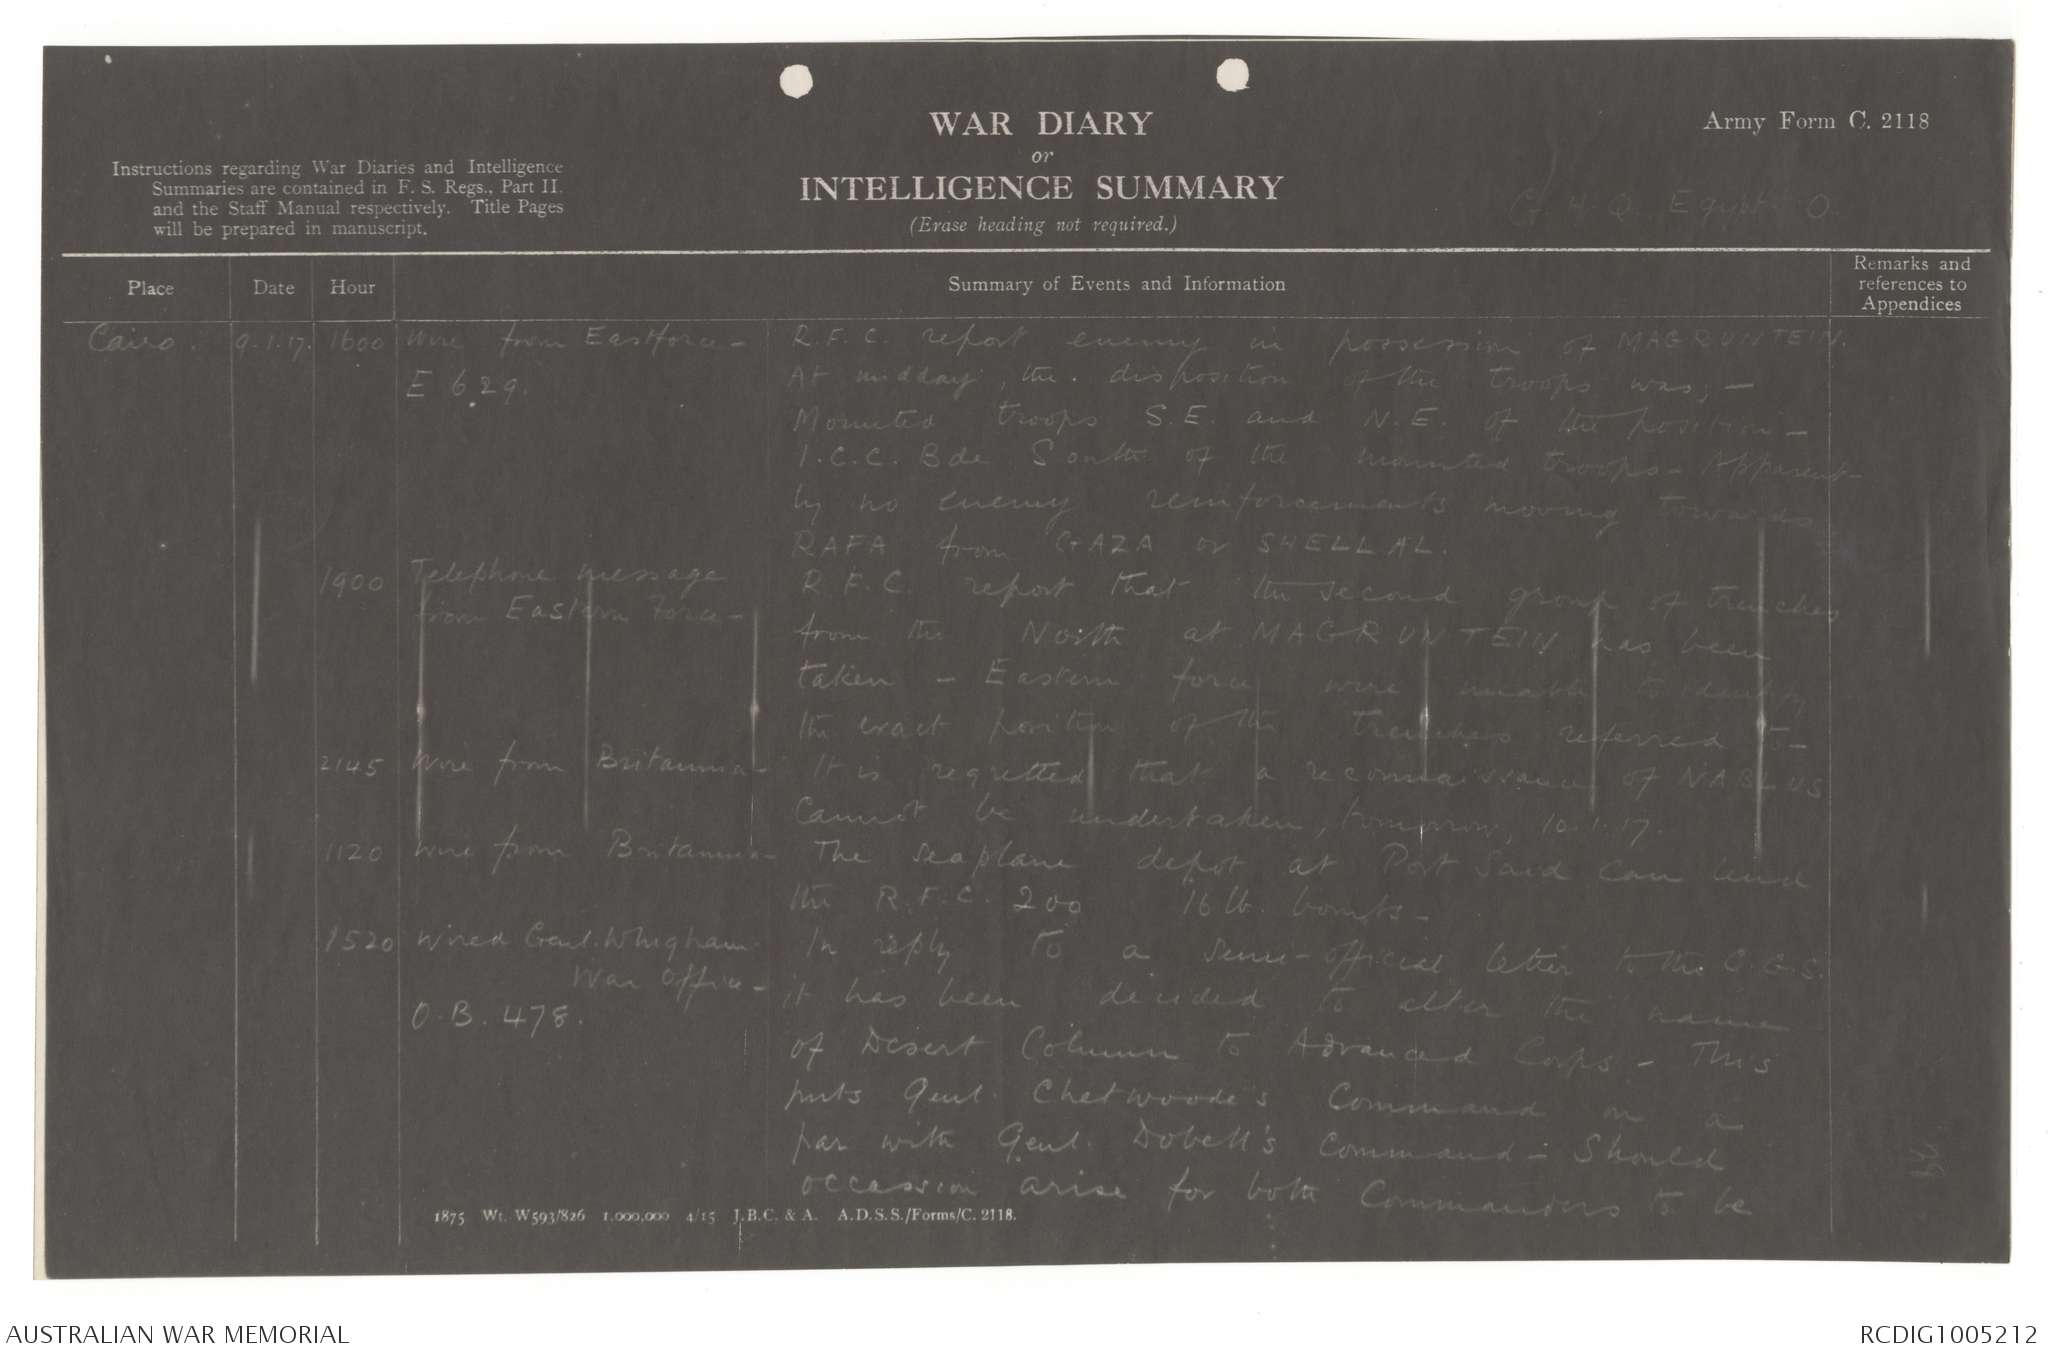 WAR DIARY
or
INTELLIGENCE SUMMARY
(Erase heading not required.)
Army Form C. 2118
Instructions regarding War Diaries and Intelligence
Summaries are contained in F. S. Regs., Part II.
and the Staff Manual respectively. Title Pages
will be prepared in manuscript.
G. H. Q. Egypt. O.
Place Date Hour Summary of Events and Information Remarks and
references to
Appendices
Cairo. 9.1.17. 1600 Wire from Eastforce - R.F.C. report enemy in possession of MAGRUNTEIN.
E 629. At midday, the disposition of the troops was; -
Mounted troops S.E. and N.E. of the position -
I.C.C. Bde South of the mounted troops - Apparent-
ly no enemy reinforcements moving towards
RAFA from GAZA or SHELLAL.
1900 Telephone message R.F.C. report that the second group of trenches
from Eastern Force - from the North at MAGRUNTEIN has been
taken - Eastern force were unable to identify
the exact position of the trenches referred to -
2145 Wire from Britannia - It is regretted that a reconnaissance of NABLUS
cannot be undertaken, tomorrow, 10.1.17.
1120 Wire from Britannia - The seaplane depot at Port Said can lend
the R.F.C. 200 16 lb. bombs -
1520 Wired Genl. Whigham In reply to a semi-official letter to the C.G.S.
War Office - it has been decided to alter the name
O.B. 478. of Desert Column to Advanced Corps - This
puts Genl. Chetwoode's Command on a
par with Genl. Dobell's command - Should
occassion arise for both Commanders to be
1875 Wt. W593/826 1,000,000 4/15 J.B.C. & A. A.D.S.S./Forms/C. 2118.
AUSTRALIAN WAR MEMORIAL
RCDIG1005212